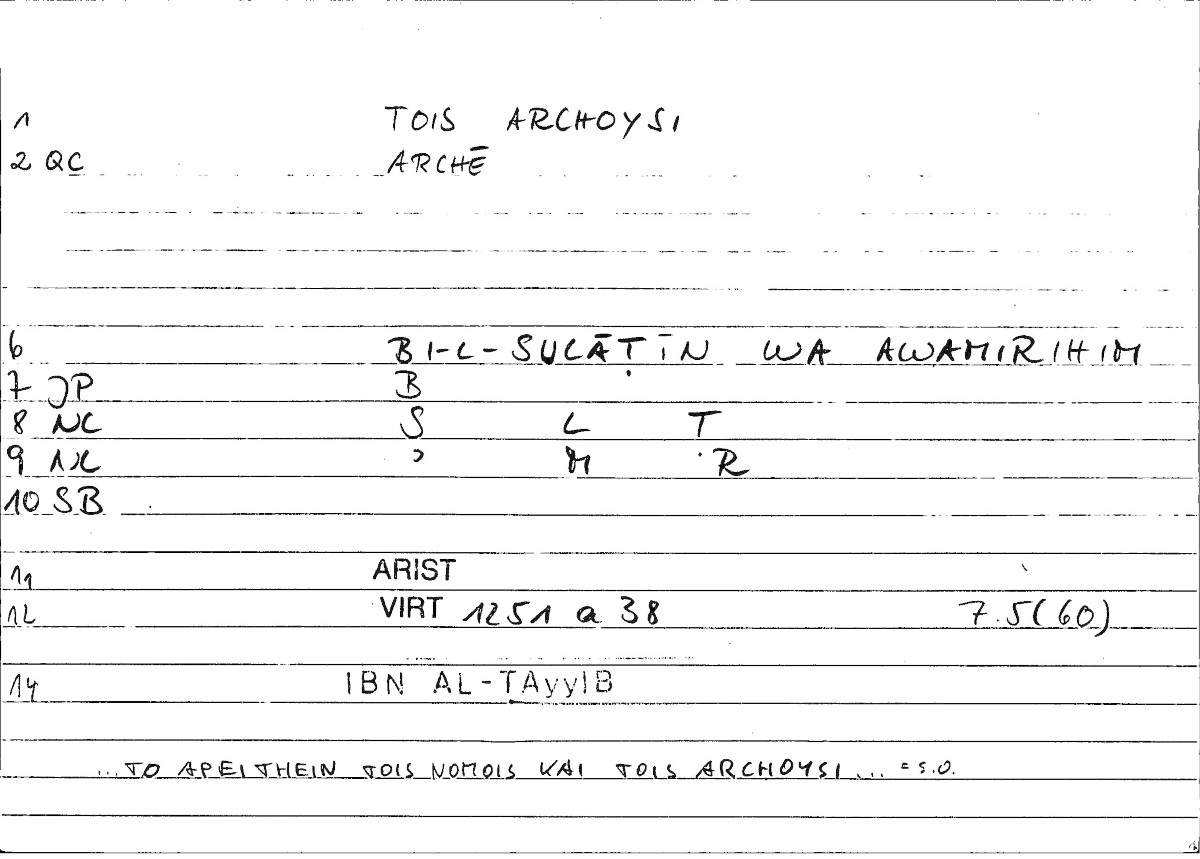 1 TOIS ARCHOYSI
2 QC ARCHĒ
6 BI-L-SULĀṬĪN WA AWAMIRIHIM
7 JP B
8 NC S L T
9 NC ʾ M R
10 SB
11 ARIST
12 VIRT 1251 a 38 7.5(60)
14 IBN AL-ṬAyyIB
...TO APEITHEIN TOIS NOMOIS KAI TOIS ARCHOYSI... = s.o.